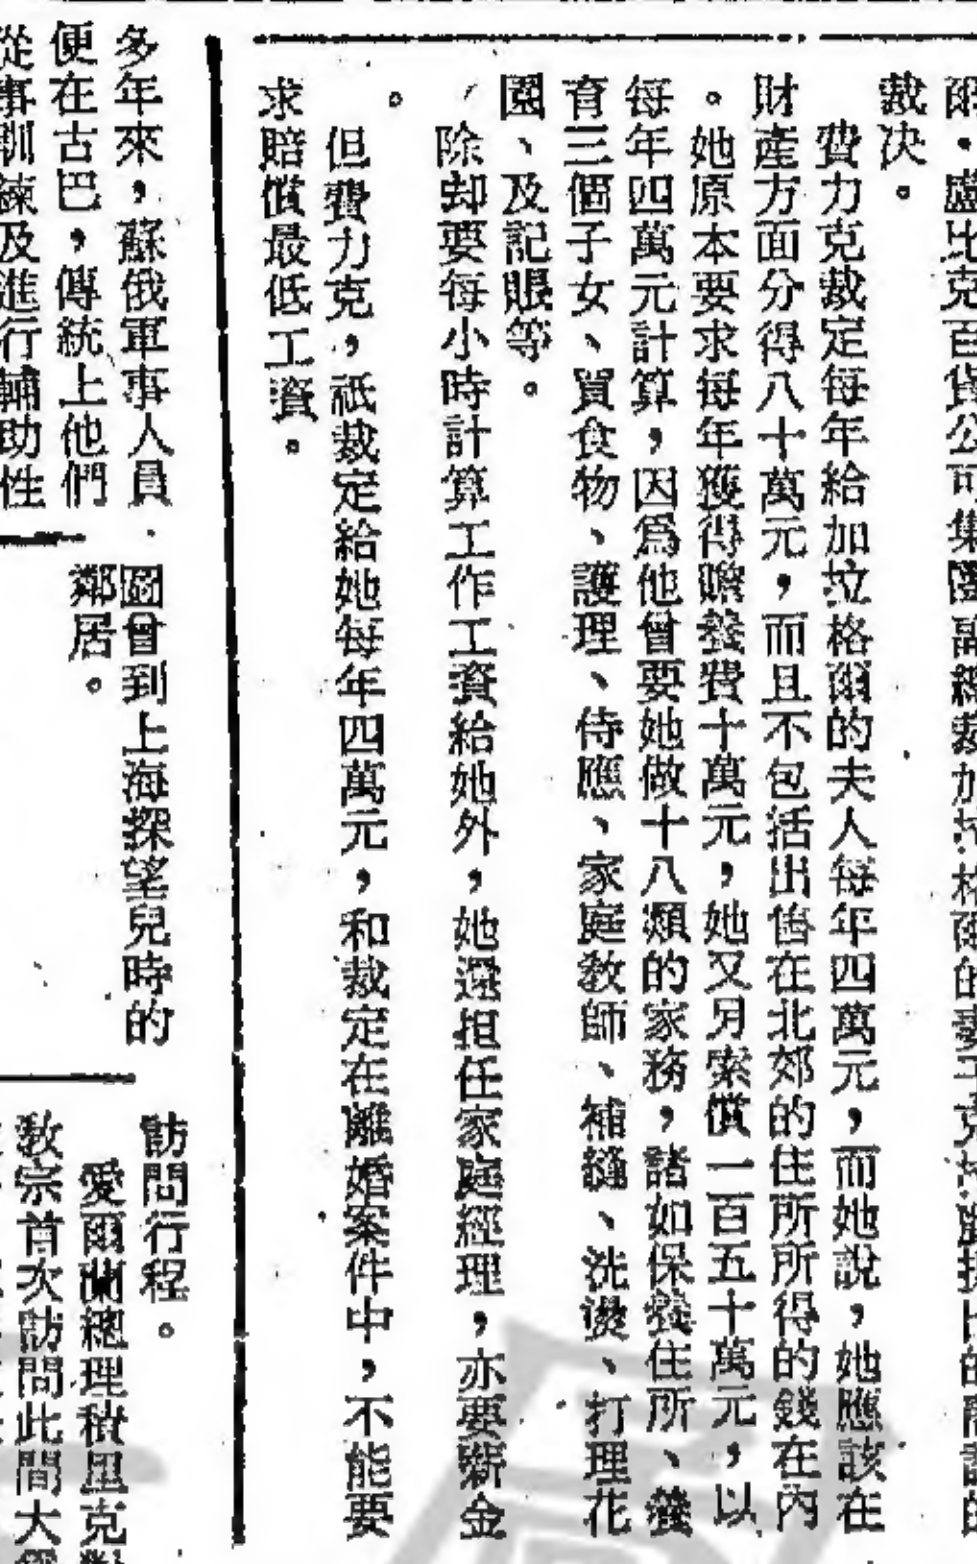 盧比克百貨公司集團副總裁加拉格爾的
裁决。
費力克裁定每年給加拉格爾的夫人每年四萬元，而她說，她應該在
財產方面分得八十萬元，而且不包括出售在北郊的住所所得的錢在內
。她原本要求每年獲得贍養費十萬元，她又另索償一百五十萬元，以
每年四萬元計算，因爲他曾要她做十八類的家務，諸如保養住所、養
育三個子女、買食物、護理、侍應、家庭教師、補縫、洗燙、打理花
園、及記賬等。
除却要每小時計算工作工資給她外，她還担任家庭經理，亦要薪金
。
但費力克，祇裁定給她每年四萬元，和裁定在離婚案件中，不能要
求賠償最低工資。
多年來，蘇俄軍事人員
便在古巴，傳統上他們
從事訓練及進行輔助性
圖曾到上海探望兒時的
鄰居。
訪問行程。
愛爾蘭總理積里克對
教宗首次訪問此間大